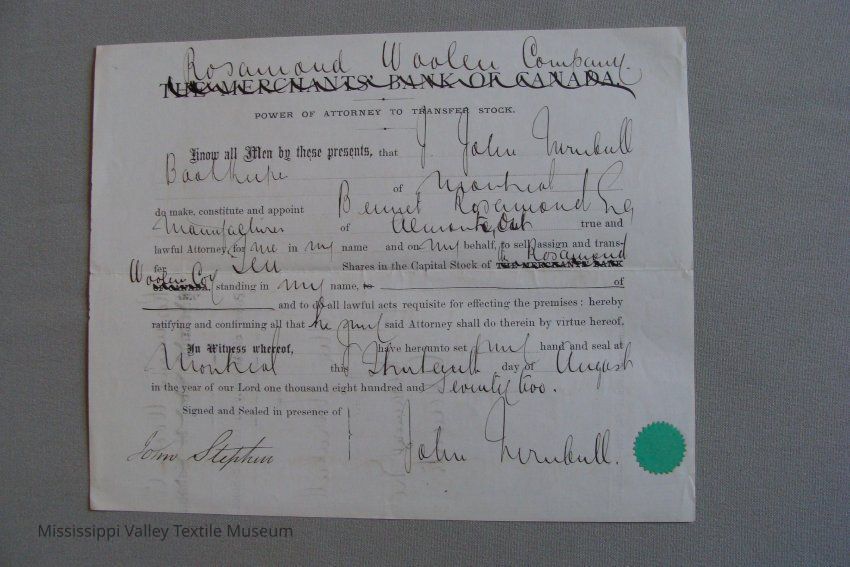 Rosamond Woolen Company.
THE MERCHANTS' BANK OF CANADA,
POWER OF ATTORNEY TO TRANSFER STOCK.
Know all Men by these presents, that I John Turnbull
Bookkeeper of Montreal
do make, constitute and appoint Bennet Rosamond Esq
Manufacturer of Almonte, Ont true and
lawful Attorney, for me in my name and on my behalf, to sell assign and trans-
fer Ten Shares in the Capital Stock of THE MERCHANTS BANK the Rosamond
OF CANADA, Woolen Coy standing in my name, to of
and to do all lawful acts requisite for effecting the premises: hereby
ratifying and confirming all that he my said Attorney shall do therein by virtue hereof.
In Witness whereof, I have hereunto set my hand and seal at
Montreal this Thirteenth day of August
in the year of our Lord one thousand eight hundred and Seventy two.
Signed and Sealed in presence of
John Stephen John Turnbull.
Mississippi Valley Textile Museum